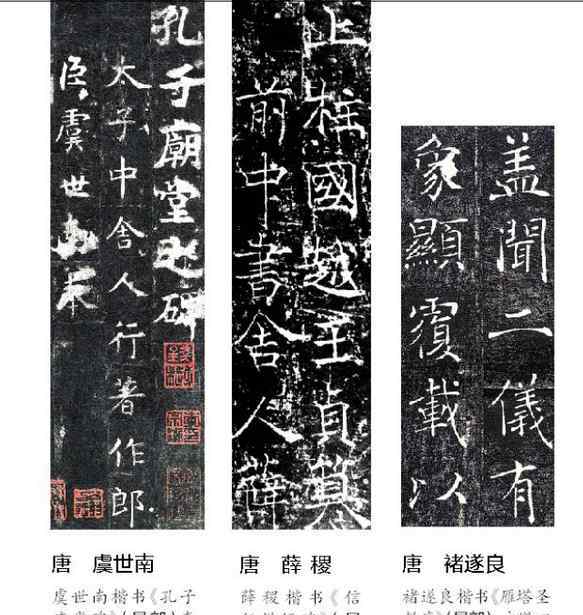 孔子廟堂之碑
太子中舍人行著作郎
臣虞世南
上柱國越王貞
前中書舍人薛
盖聞二儀有
象顯覆載以
唐 虞世南
虞世南楷书《孔子
唐 薛稷
薛稷楷书《信
唐 褚遂良
褚遂良楷书《雁塔圣